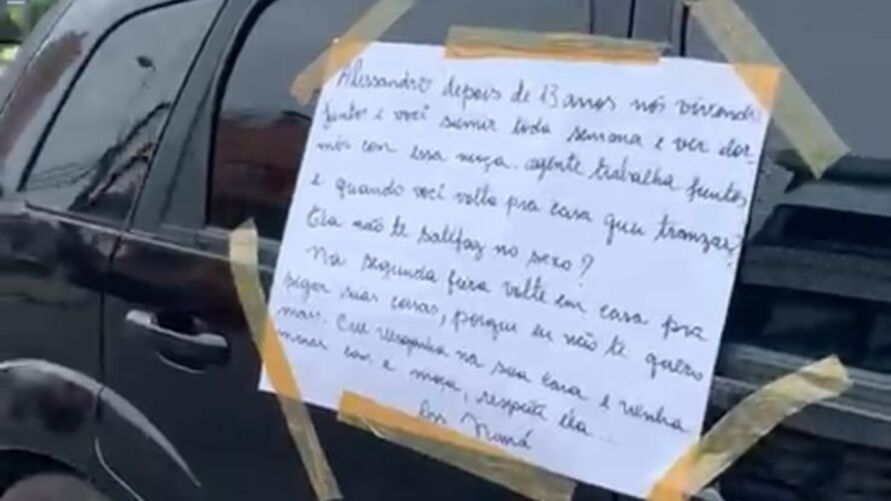 Alessandro depois de 13 anos nós vivendo
juntos e você sumir toda semana e ver dor
mir con essa moça. agente trabalha juntos
e quando você volta pra casa quer tranzar?
Ela não te satifaz no sexo?
Na segunda feira volte em casa pra
pegar suas coisas, porque eu não te quero
mais. Crie vergonha na sua cara e venha
morar con e moça, respeite ela...
Ass Naná